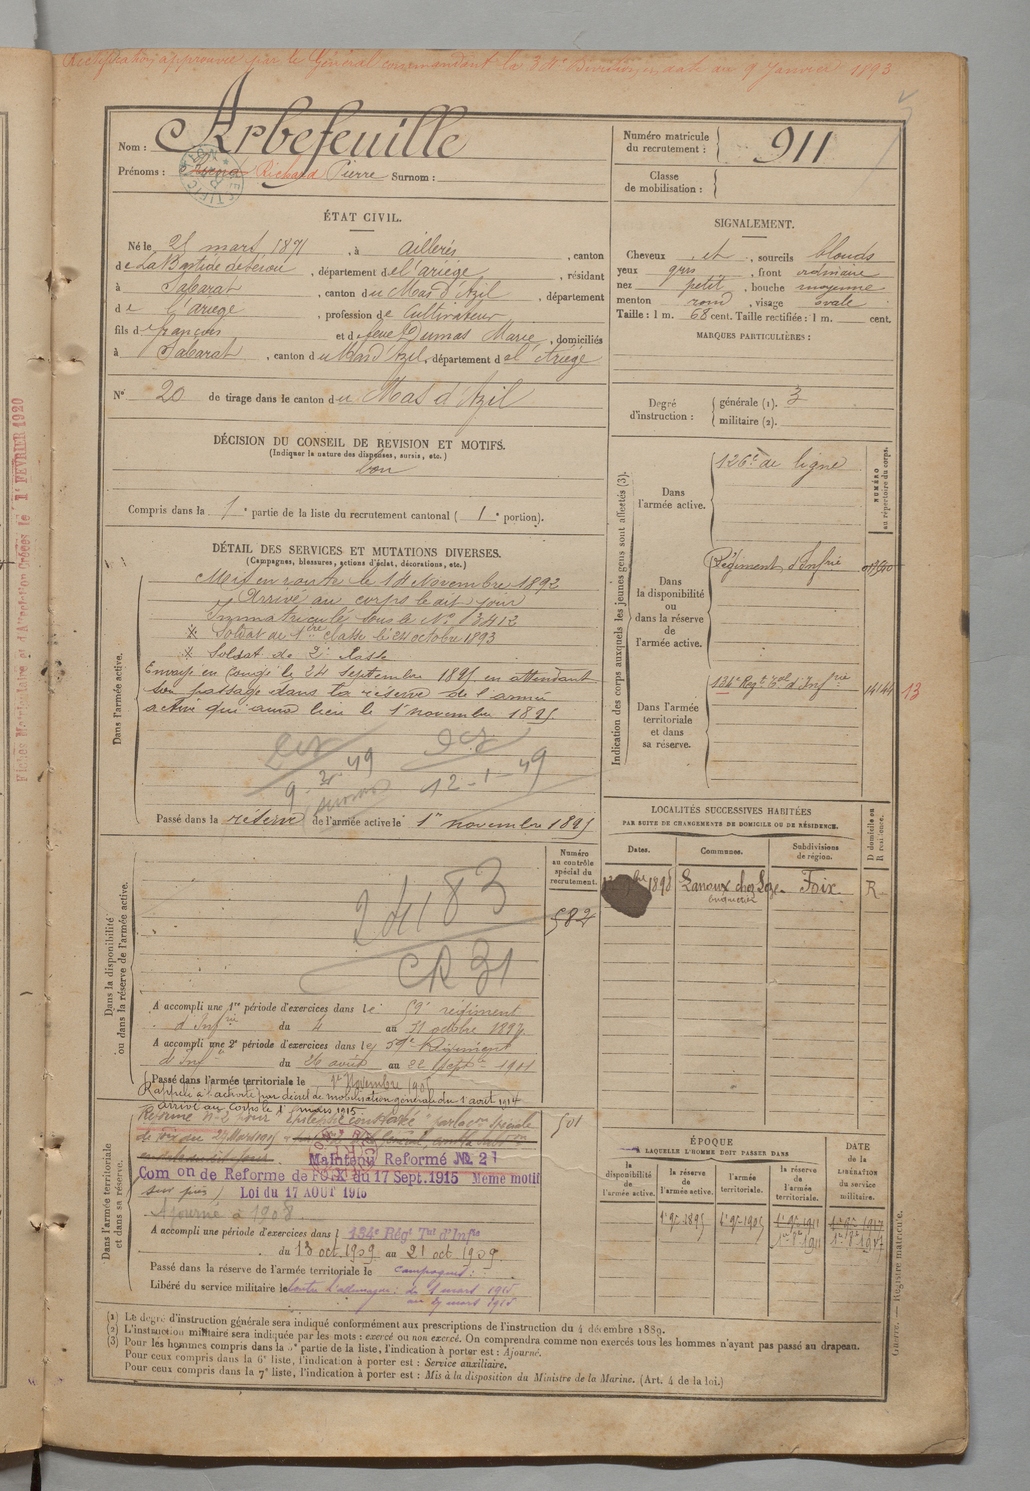 Rectification approuvée par le Général commandant la 34e Division en date du 9 Janvier 1893
Nom : Arbefeuille
Prénoms : Richard Pierre Surnom :
Numéro matricule du recrutement : 911
Classe de mobilisation :
ÉTAT CIVIL.
Né le 25 mars 1871, à Aillères, canton
de La Bastide de Sérou, département de l'ariège, résidant
à Sabarat, canton du Mas d'Azil, département
de l'ariège, profession de cultivateur
fils de françois et de feue Dumas Marie, domiciliés
à Sabarat, canton du Mas d'Azil, département de l'Ariège
N° 20 de tirage dans le canton du Mas d'Azil
SIGNALEMENT.
Cheveux et, sourcils blonds
yeux gris, front ordinaire
nez petit, bouche moyenne
menton rond, visage ovale
Taille : 1 m. 68 cent. Taille rectifiée : 1 m. cent.
MARQUES PARTICULIÈRES :
Degré d'instruction : générale (1). 3
militaire (2).
DÉCISION DU CONSEIL DE REVISION ET MOTIFS.
(Indiquer la nature des dispenses, sursis, etc.)
bon
Compris dans la 1e partie de la liste du recrutement cantonal (1e portion).
DÉTAIL DES SERVICES ET MUTATIONS DIVERSES.
(Campagnes, blessures, actions d'éclat, décorations, etc.)
Dans l'armée active.
Mis en route le 14 Novembre 1892
Arrivé au corps le dit jour
Immatriculé sous le N° 3412
Soldat de 1ère classe le 24 octobre 1893
Soldat de 2e classe
Envoyé en congé le 24 septembre 1895 en attendant
son passage dans la réserve de l'armée
active qui aura lieu le 1 novembre 1895
12-1-49
Passé dans la réserve de l'armée active le 1er novembre 1895
Indication des corps auxquels les jeunes gens sont affectés (3).
NUMÉRO au répertoire du corps.
Dans l'armée active.
126e de ligne
Dans la disponibilité ou dans la réserve de l'armée active.
Régiment d'Infrie
Dans l'armée territoriale et dans sa réserve.
134e Regt Tal d'Infrie 14144 13
LOCALITÉS SUCCESSIVES HABITÉES
PAR SUITE DE CHANGEMENTS DE DOMICILE OU DE RÉSIDENCE.
Dates. Communes. Subdivisions de région. D domicile ou R résidence.
1898 Lanoux Foix R
Dans la disponibilité ou dans la réserve de l'armée active.
Numéro au contrôle spécial du recrutement.
582
24183
CR 31
A accompli une 1re période d'exercices dans le 59e régiment
d'Infrie du 4 au 31 octobre 1897
A accompli une 2e période d'exercices dans le 59e Régiment
d'Infie du 26 août au 22 Septbre 1901
Passé dans l'armée territoriale le 1er Novembre 1905
Rappelé à l'activité par décret de mobilisation générale du 1 août 1914
arrivé au corps le 1 mars 1915
Dans l'armée territoriale et dans sa réserve.
501
Réformé n° 2 pour "épilepsie constatée" par la Con Spéciale
de Foix du 27 Mars 1915
Maintenu Reformé No. 2
Comon de Reforme de FOIX du 17 Sept. 1915 Même motif
Loi du 17 AOUT 1915
Ajourné à 1908
A accompli une période d'exercices dans 134e Régt Tal d'Infie
du 13 oct. 1909 au 21 oct. 1909
Passé dans la réserve de l'armée territoriale le campagnes :
Libéré du service militaire le contre l'allemagne : du 1 mars 1915
au 27 mars 1915
ÉPOQUE
À LAQUELLE L'HOMME DOIT PASSER DANS
la disponibilité de l'armée active. la réserve de l'armée active. l'armée territoriale. la réserve de l'armée territoriale. DATE de la LIBÉRATION du service militaire.
1er 9bre 1895 1er 9bre 1905 1er 9bre 1911 1er 9bre 1917
(1) Le degré d'instruction générale sera indiqué conformément aux prescriptions de l'instruction du 4 décembre 1889.
(2) L'instruction militaire sera indiquée par les mots : exercé ou non exercé. On comprendra comme non exercés tous les hommes n'ayant pas passé au drapeau.
(3) Pour les hommes compris dans la 5e partie de la liste, l'indication à porter est : Ajourné.
Pour ceux compris dans la 6e liste, l'indication à porter est : Service auxiliaire.
Pour ceux compris dans la 7e liste, l'indication à porter est : Mis à la disposition du Ministre de la Marine. (Art. 4 de la loi.)
Guerre. — Registre matricule.
1er FEVRIER 1920